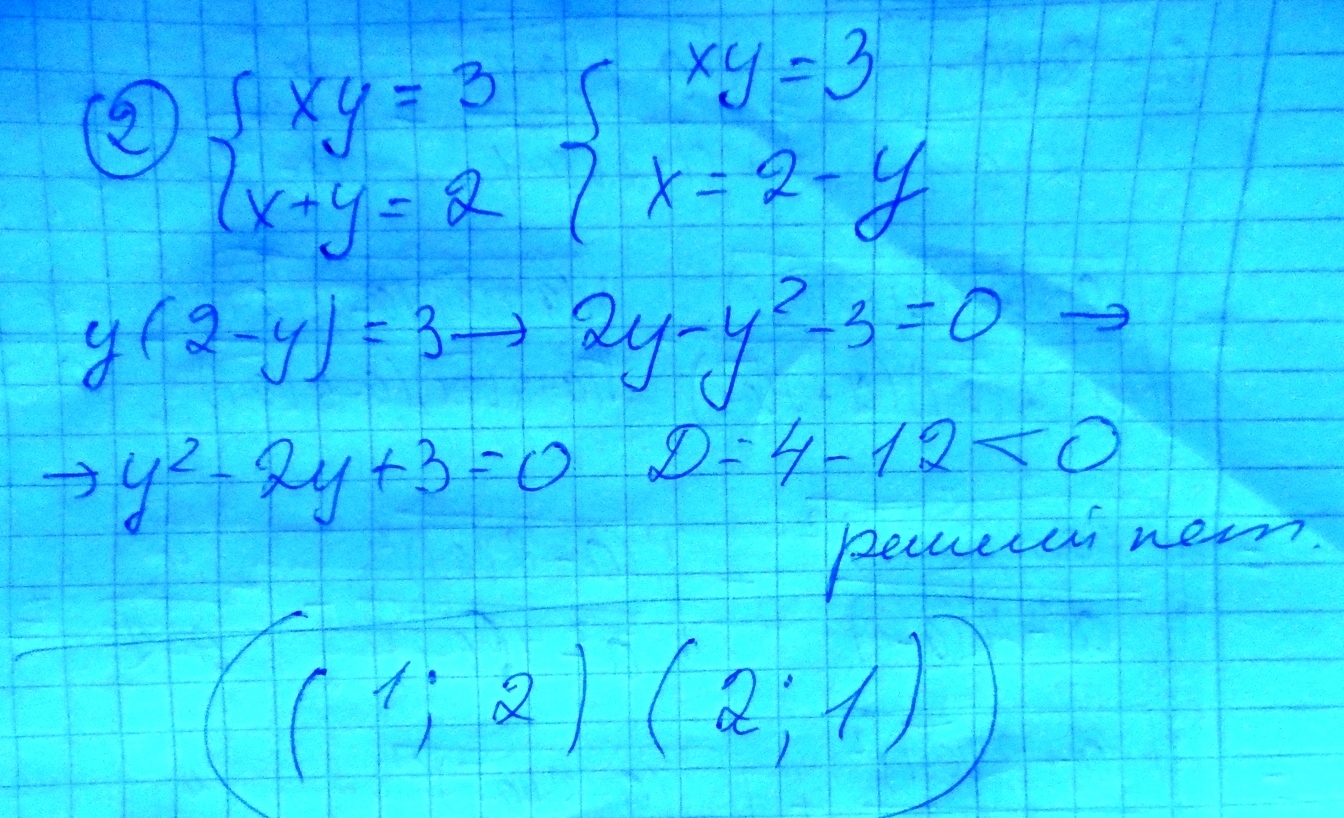 ② { xy = 3 { xy = 3
{ x+y = 2 { x = 2 - y
y(2-y) = 3 → 2y - y² - 3 = 0 →
→ y² - 2y + 3 = 0 D = 4 - 12 < 0
решений нет.
((1; 2) (2; 1))